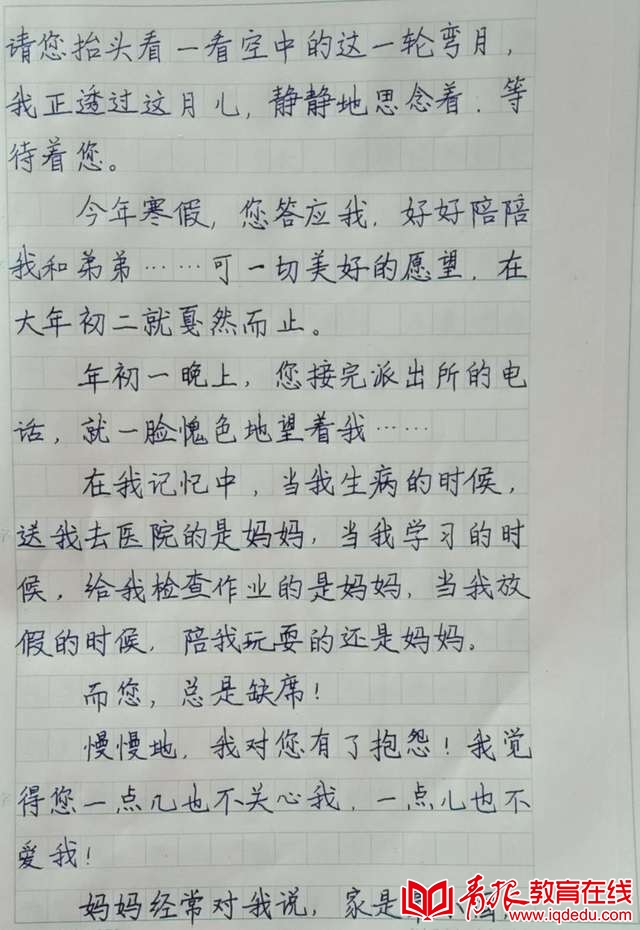 请您抬头看一看空中的这一轮弯月，
我正透过这月儿，静静地思念着、等
待着您。
今年寒假，您答应我，好好陪陪
我和弟弟……可一切美好的愿望，在
大年初二就戛然而止。
年初一晚上，您接完派出所的电
话，就一脸愧色地望着我……
在我记忆中，当我生病的时候，
送我去医院的是妈妈，当我学习的时
候，给我检查作业的是妈妈，当我放
假的时候，陪我玩耍的还是妈妈。
而您，总是缺席！
慢慢地，我对您有了抱怨！我觉
得您一点儿也不关心我，一点儿也不
爱我！
妈妈经常对我说，家是
青报教育在线
www.iqdedu.com